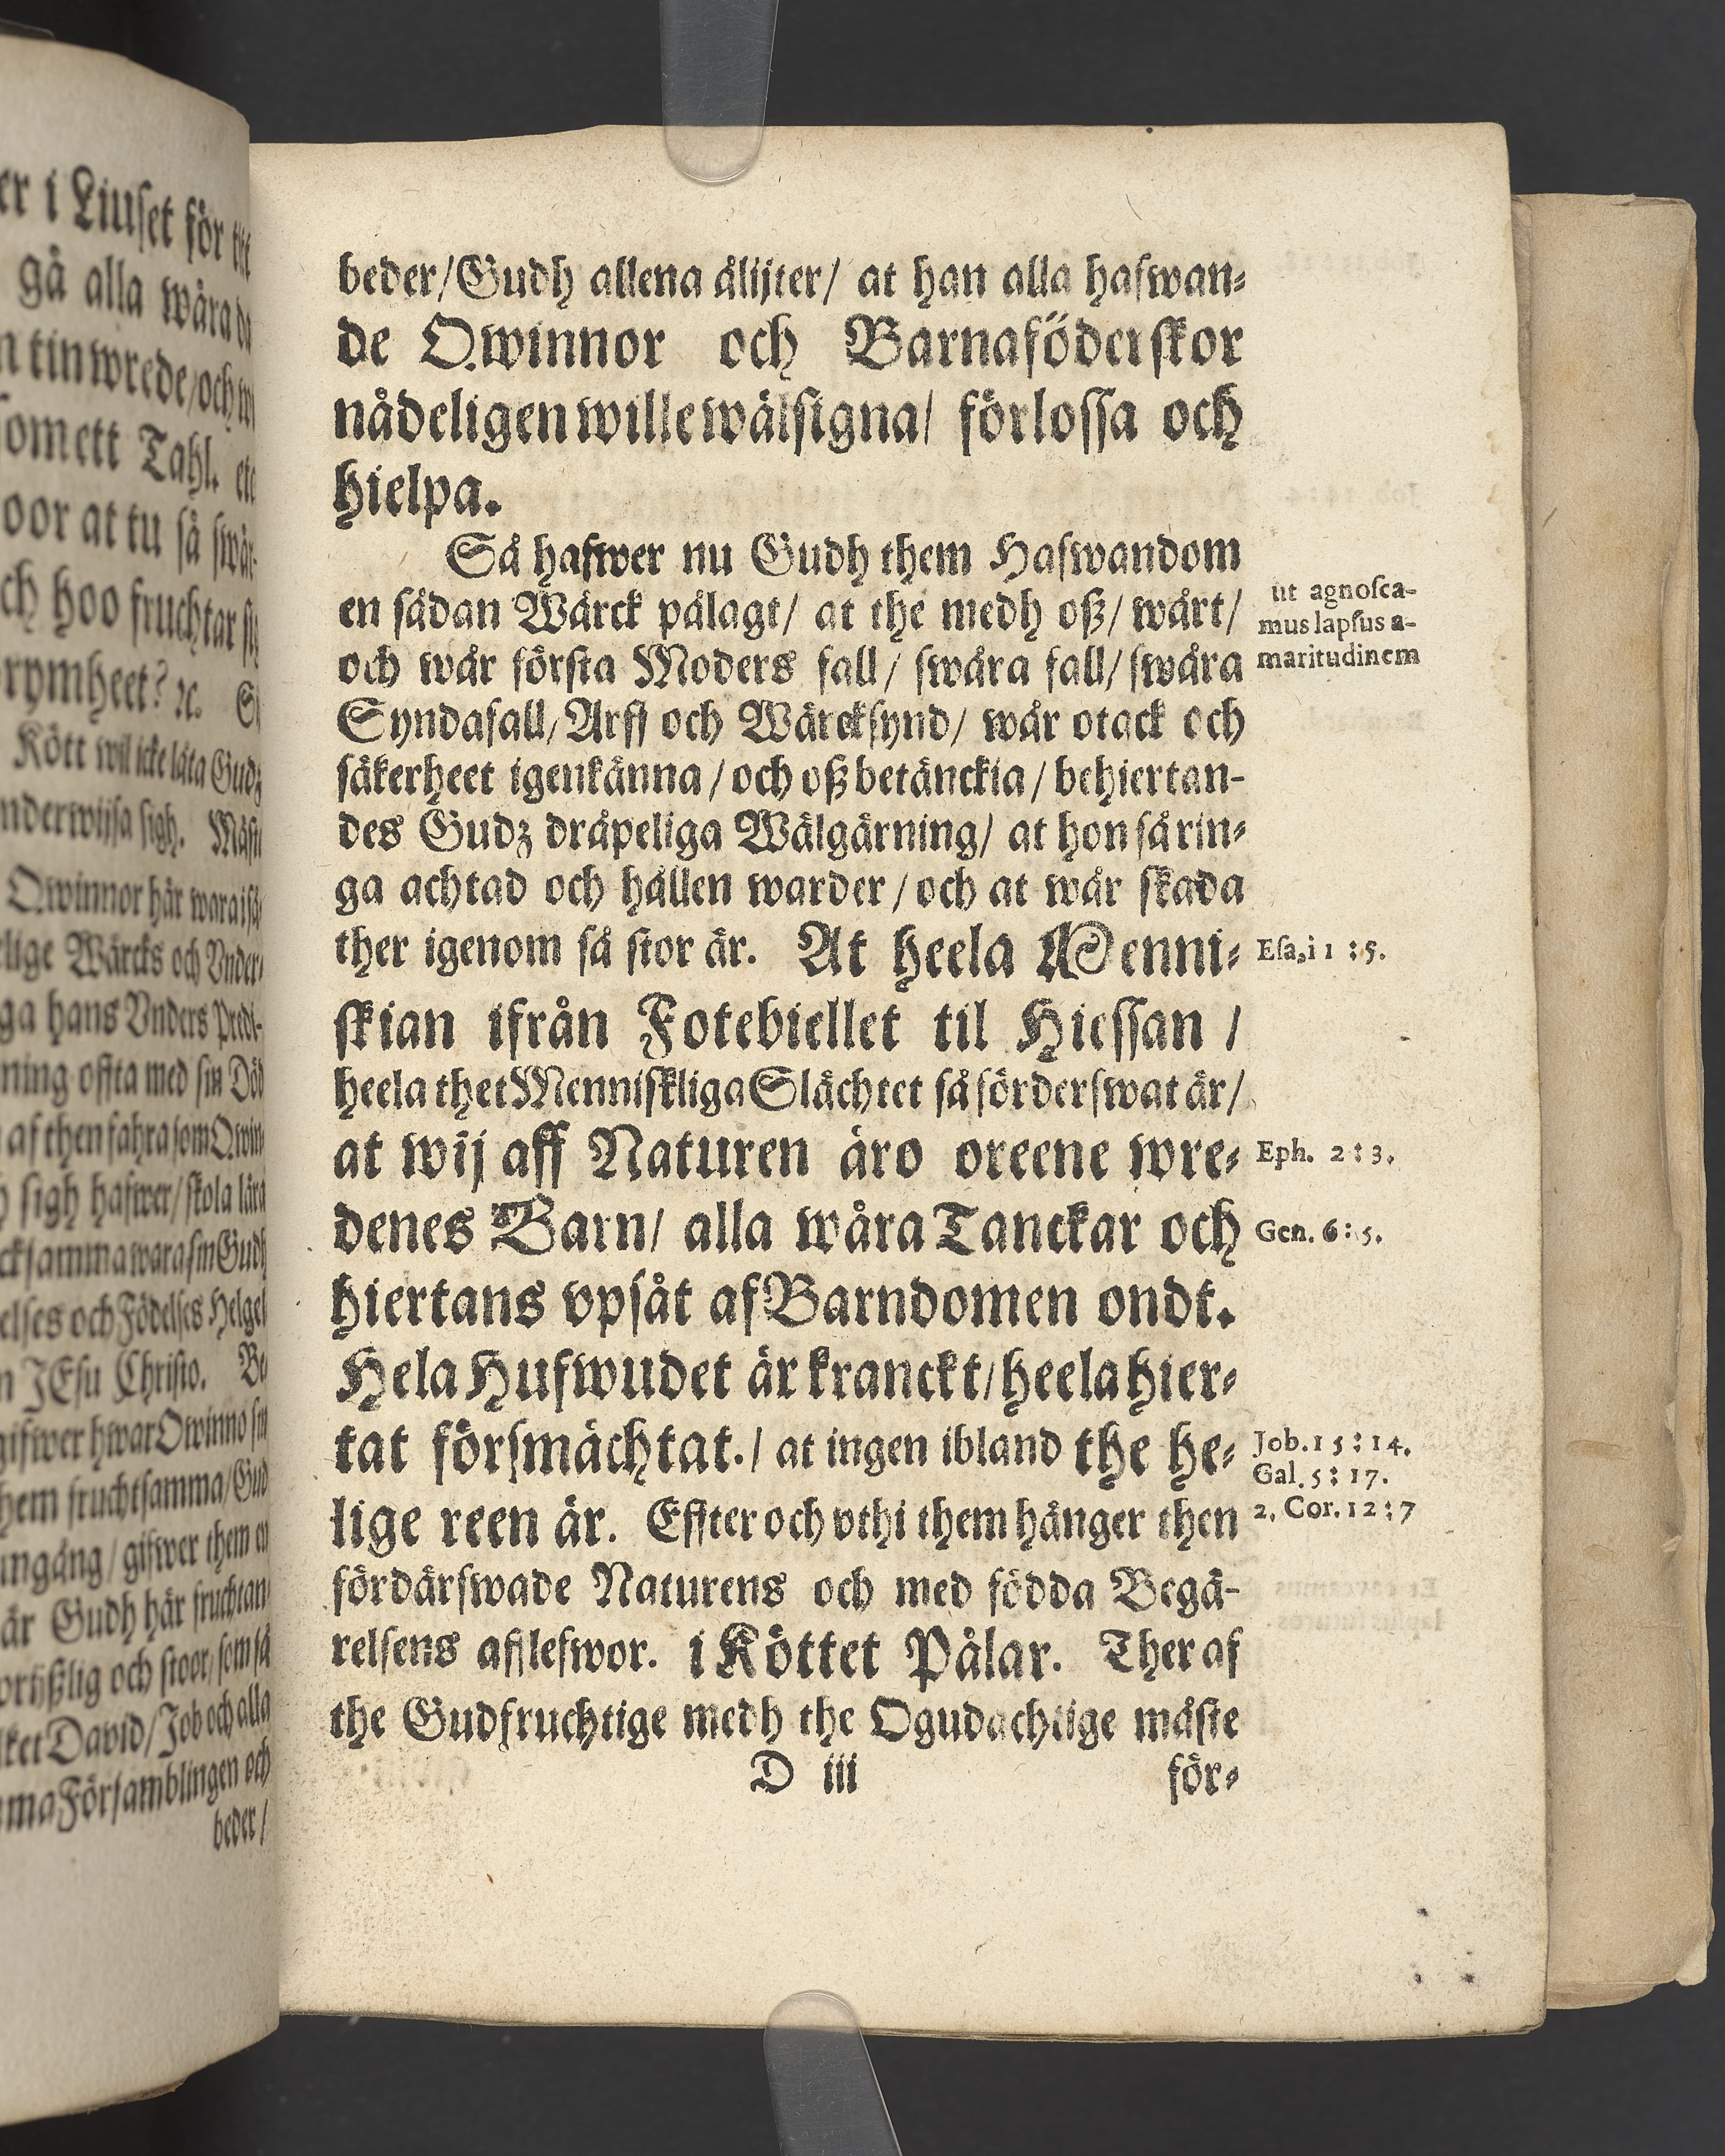 er i Liuset för
gå alla wåra
tin wrede/och
som ett Tahl. etc
oor at tu så swår-
ch hoo fruchtar
rymheet? ꝛc.
Kött wil icke låta Gudz
nderwijsa sigh. Måst
Qwinnor här wara
elige Wärcks och Vnder-
ga hans Vnders Predi-
ning offta med sin Död
af then fahra som Qwin-
sigh hafwer/skola lära
cksamma wara sin Gudh
elses och Födelses Helgel
n JEsu Christo. Be
gifwer hwar Qwinno sin
them fruchtsamma/Gud
mgång/gifwer them
är Gudh här fruchtan
orijßlig och stoor/som så
lket David/Job och alla
ma Församblingen och
beder/
beder/Gudh allena ålijter/ at han alla hafwan-
de Qwinnor och Barnaföderskor
nådeligen wille wälsigna/ förlossa och
hielpa.
Så hafwer nu Gudh them Hafwandom
en sådan Wärck pålagt/ at the medh oß/ wårt/
och wår första Moders fall/ swåra fall/ swåra
Syndafall/Arff och Wärcksynd/ wår otack och
säkerheet igenkänna/och oß betänckia/behiertan-
des Gudz dråpeliga Wälgärning/ at hon så rin-
ga achtad och hållen warder/och at wår skada
ther igenom så stor är. At heela Menni-
skian ifrån Fotebiellet til Hiessan/
heela thet Menniskliga Slächtet så förderfwat är/
at wij aff Naturen äro oreene wre-
denes Barn/ alla wåra Tanckar och
hiertans vpsåt af Barndomen ondt.
Hela Hufwudet är kranckt/heela hier-
tat försmächtat./ at ingen ibland the he-
lige reen är. Effter och vthi them hänger then
fördärfwade Naturens och med födda Begä-
relsens afflefwor. i Köttet Pålar. Ther af
the Gudfruchtige medh the Ogudachtige måste
D iii
för-
ut agnosca-
mus lapsus a-
maritudinem
Esa. i 1 : 5.
Eph. 2 : 3.
Gen. 6 : 5.
Job. 15 : 14.
Gal. 5 : 17.
2. Cor. 12 : 7